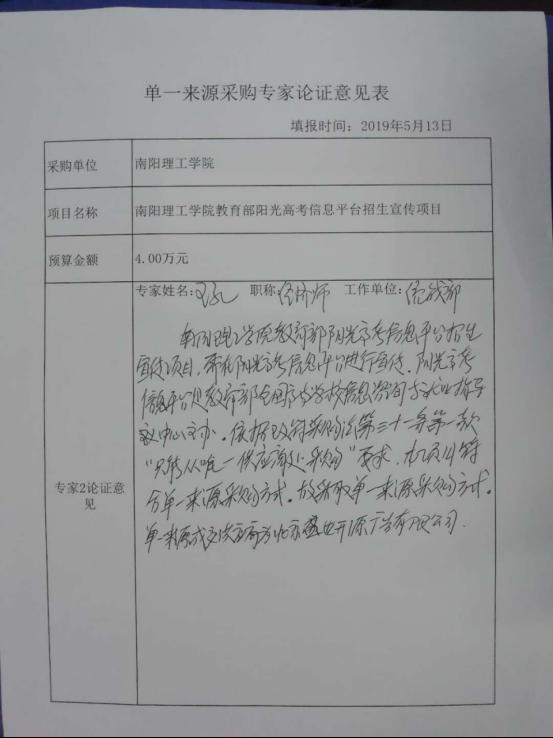 单一来源采购专家论证意见表
填报时间：2019年5月13日
采购单位 南阳理工学院
项目名称 南阳理工学院教育部阳光高考信息平台招生宣传项目
预算金额 4.00万元
专家姓名： 职称：经济师 工作单位：统战部
专家2论证意见
南阳理工学院教育部阳光高考信息平台招生
宣传项目，需在阳光高考信息平台进行宣传，阳光高考
信息平台是教育部全国高等学校信息咨询与就业指导
中心主办。依据政府采购法第三十一条第一款
“只能从唯一供应商处采购”要求，本项目符
合单一来源采购方式。故采取单一来源采购方式。
单一来源成交供应商为北京盛世开源广告有限公司.